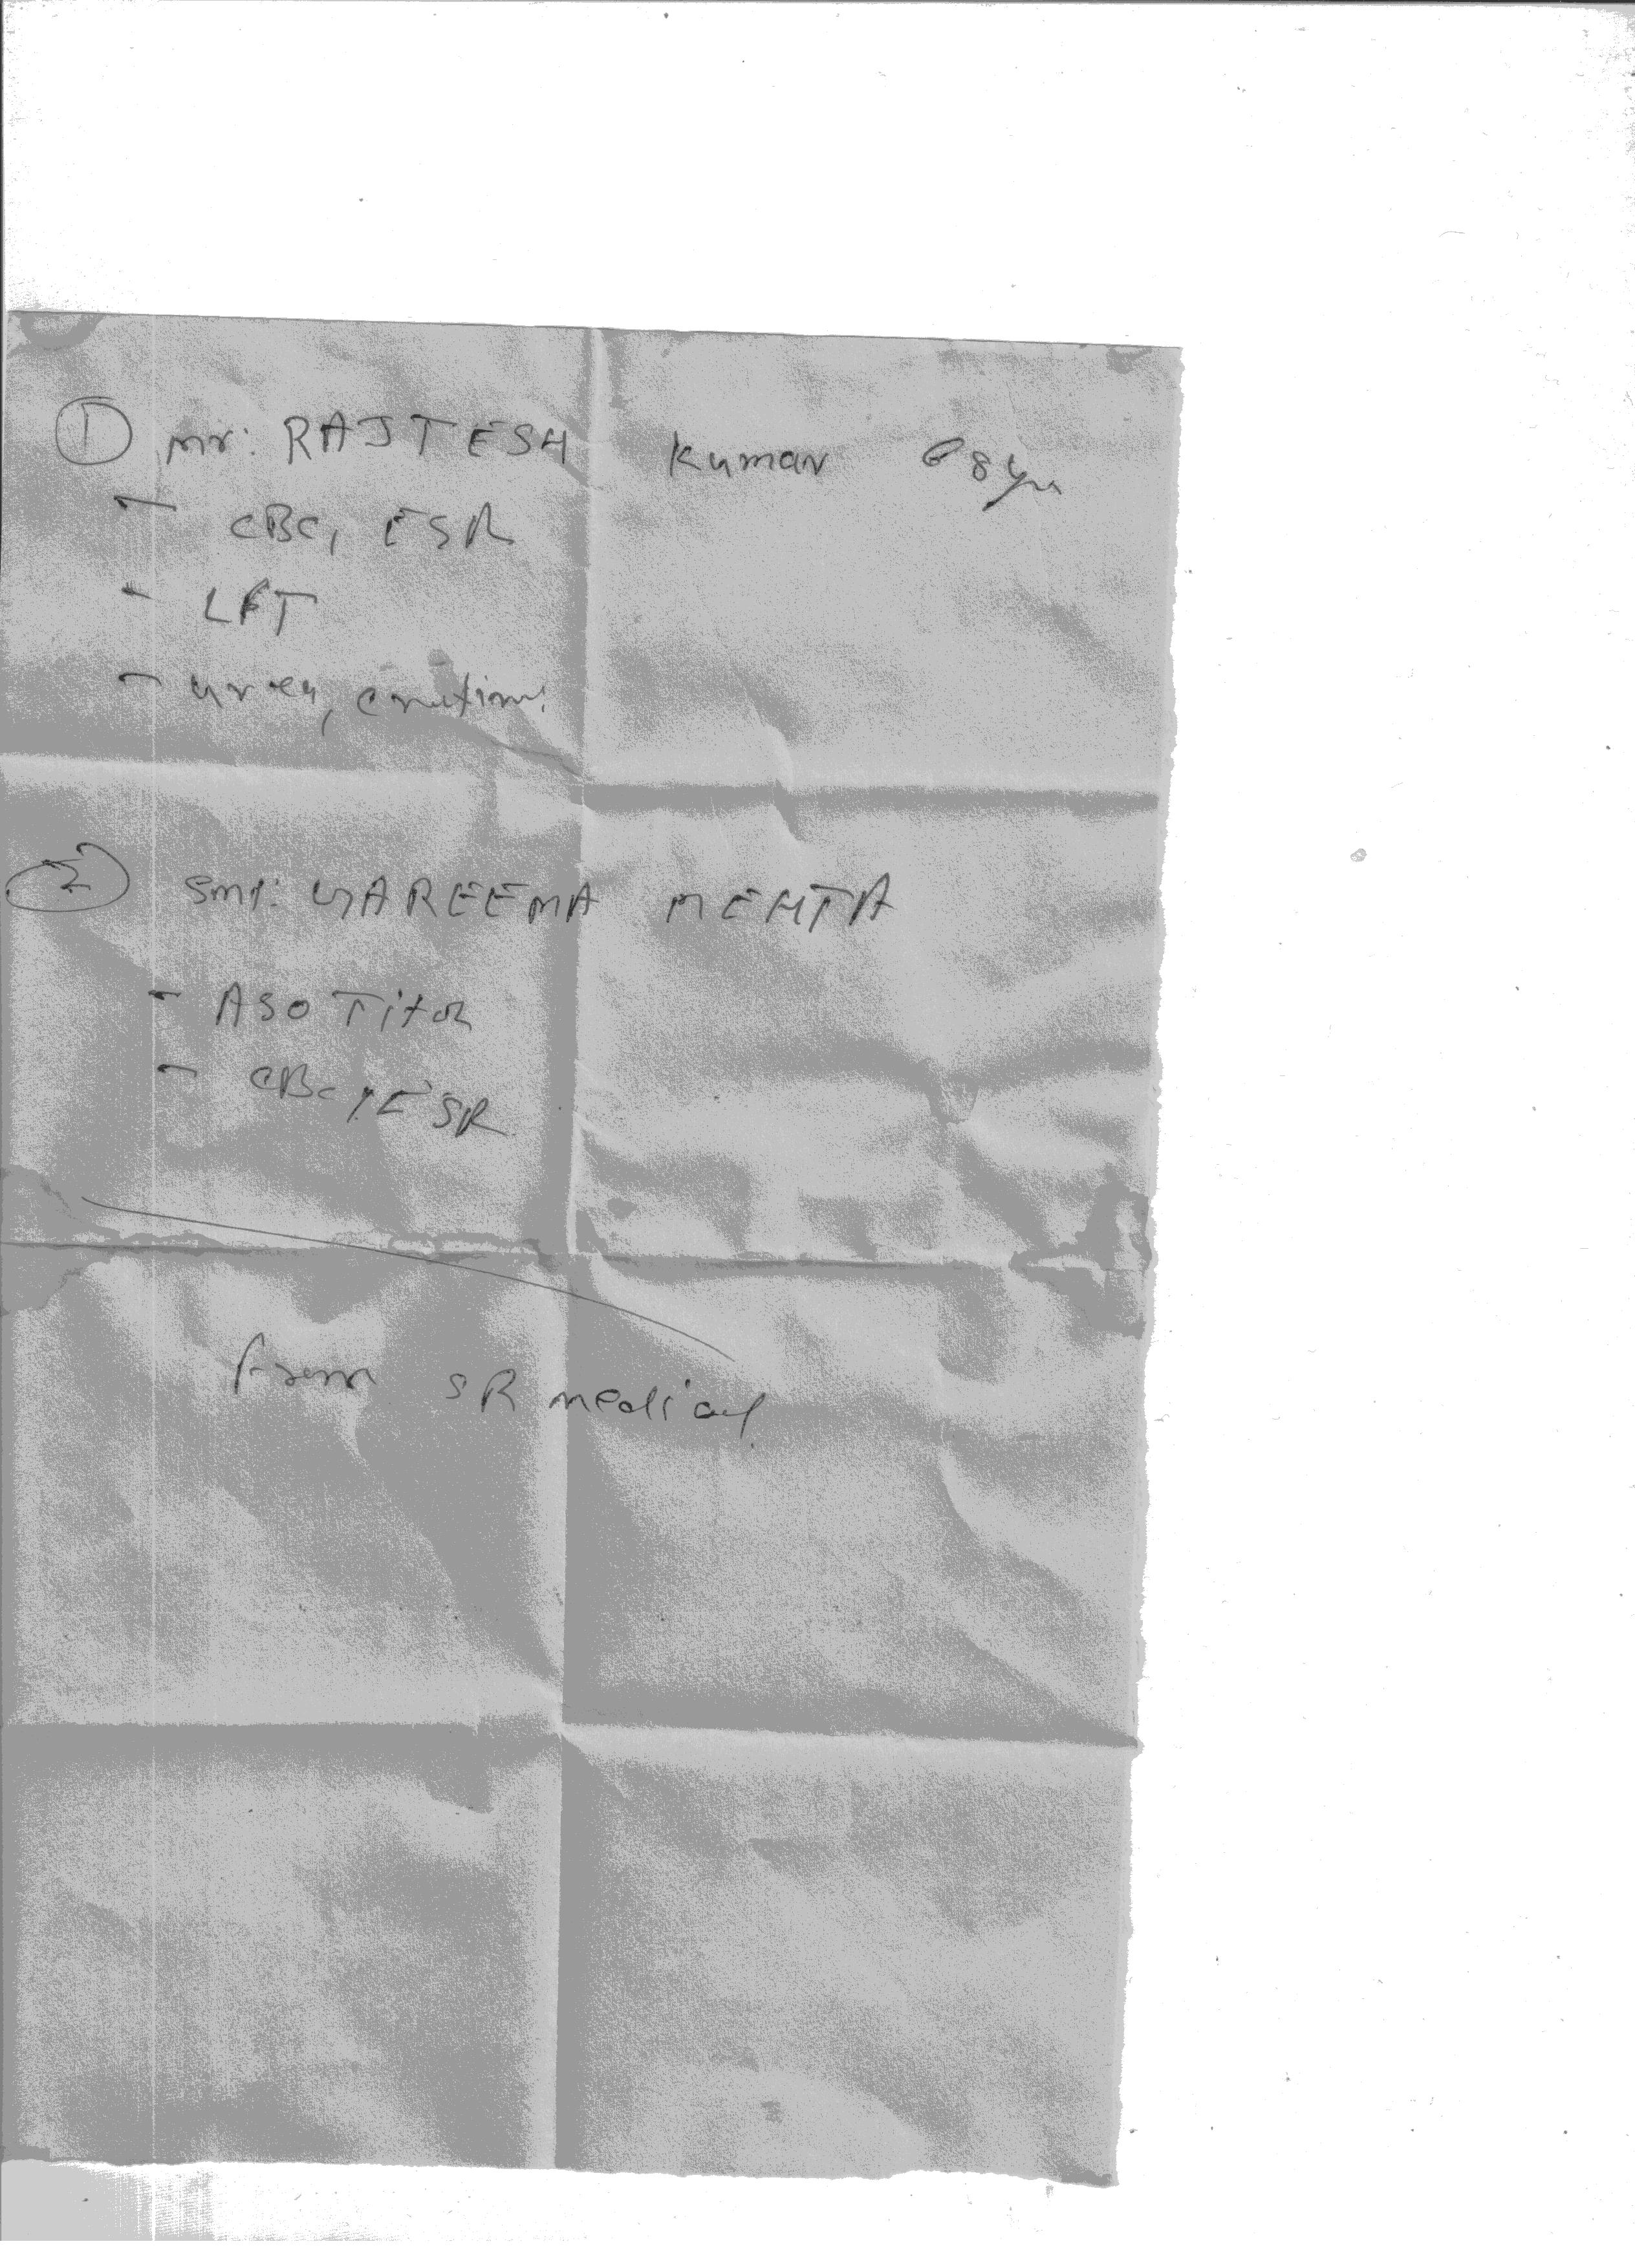 ① Mr: RAJTESH Kumar 68yrs
- CBC, ESR
- LFT
- urea, creatinine
② Smt: GAREEMA MEHTA
- ASO Titer
- CBC, ESR
from SR medical